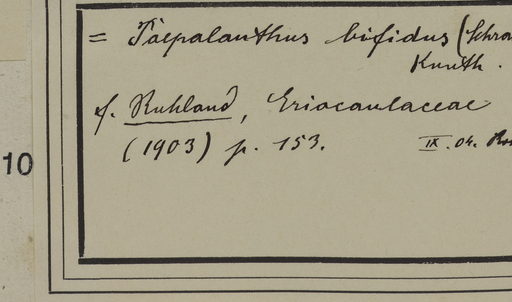 = Paepalanthus bifidus (Schra
Kunth.
cf. Ruhland, Eriocaulaceae
(1903) p. 153.
IX. 04.
10